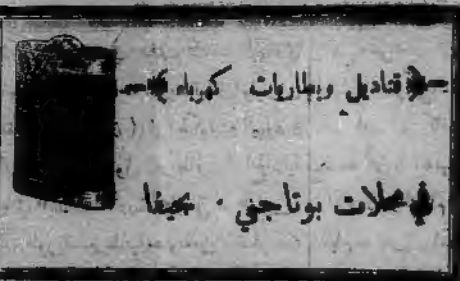 قناديل وبطاريات كهرباء
في محلات بوتاجي . حيفا